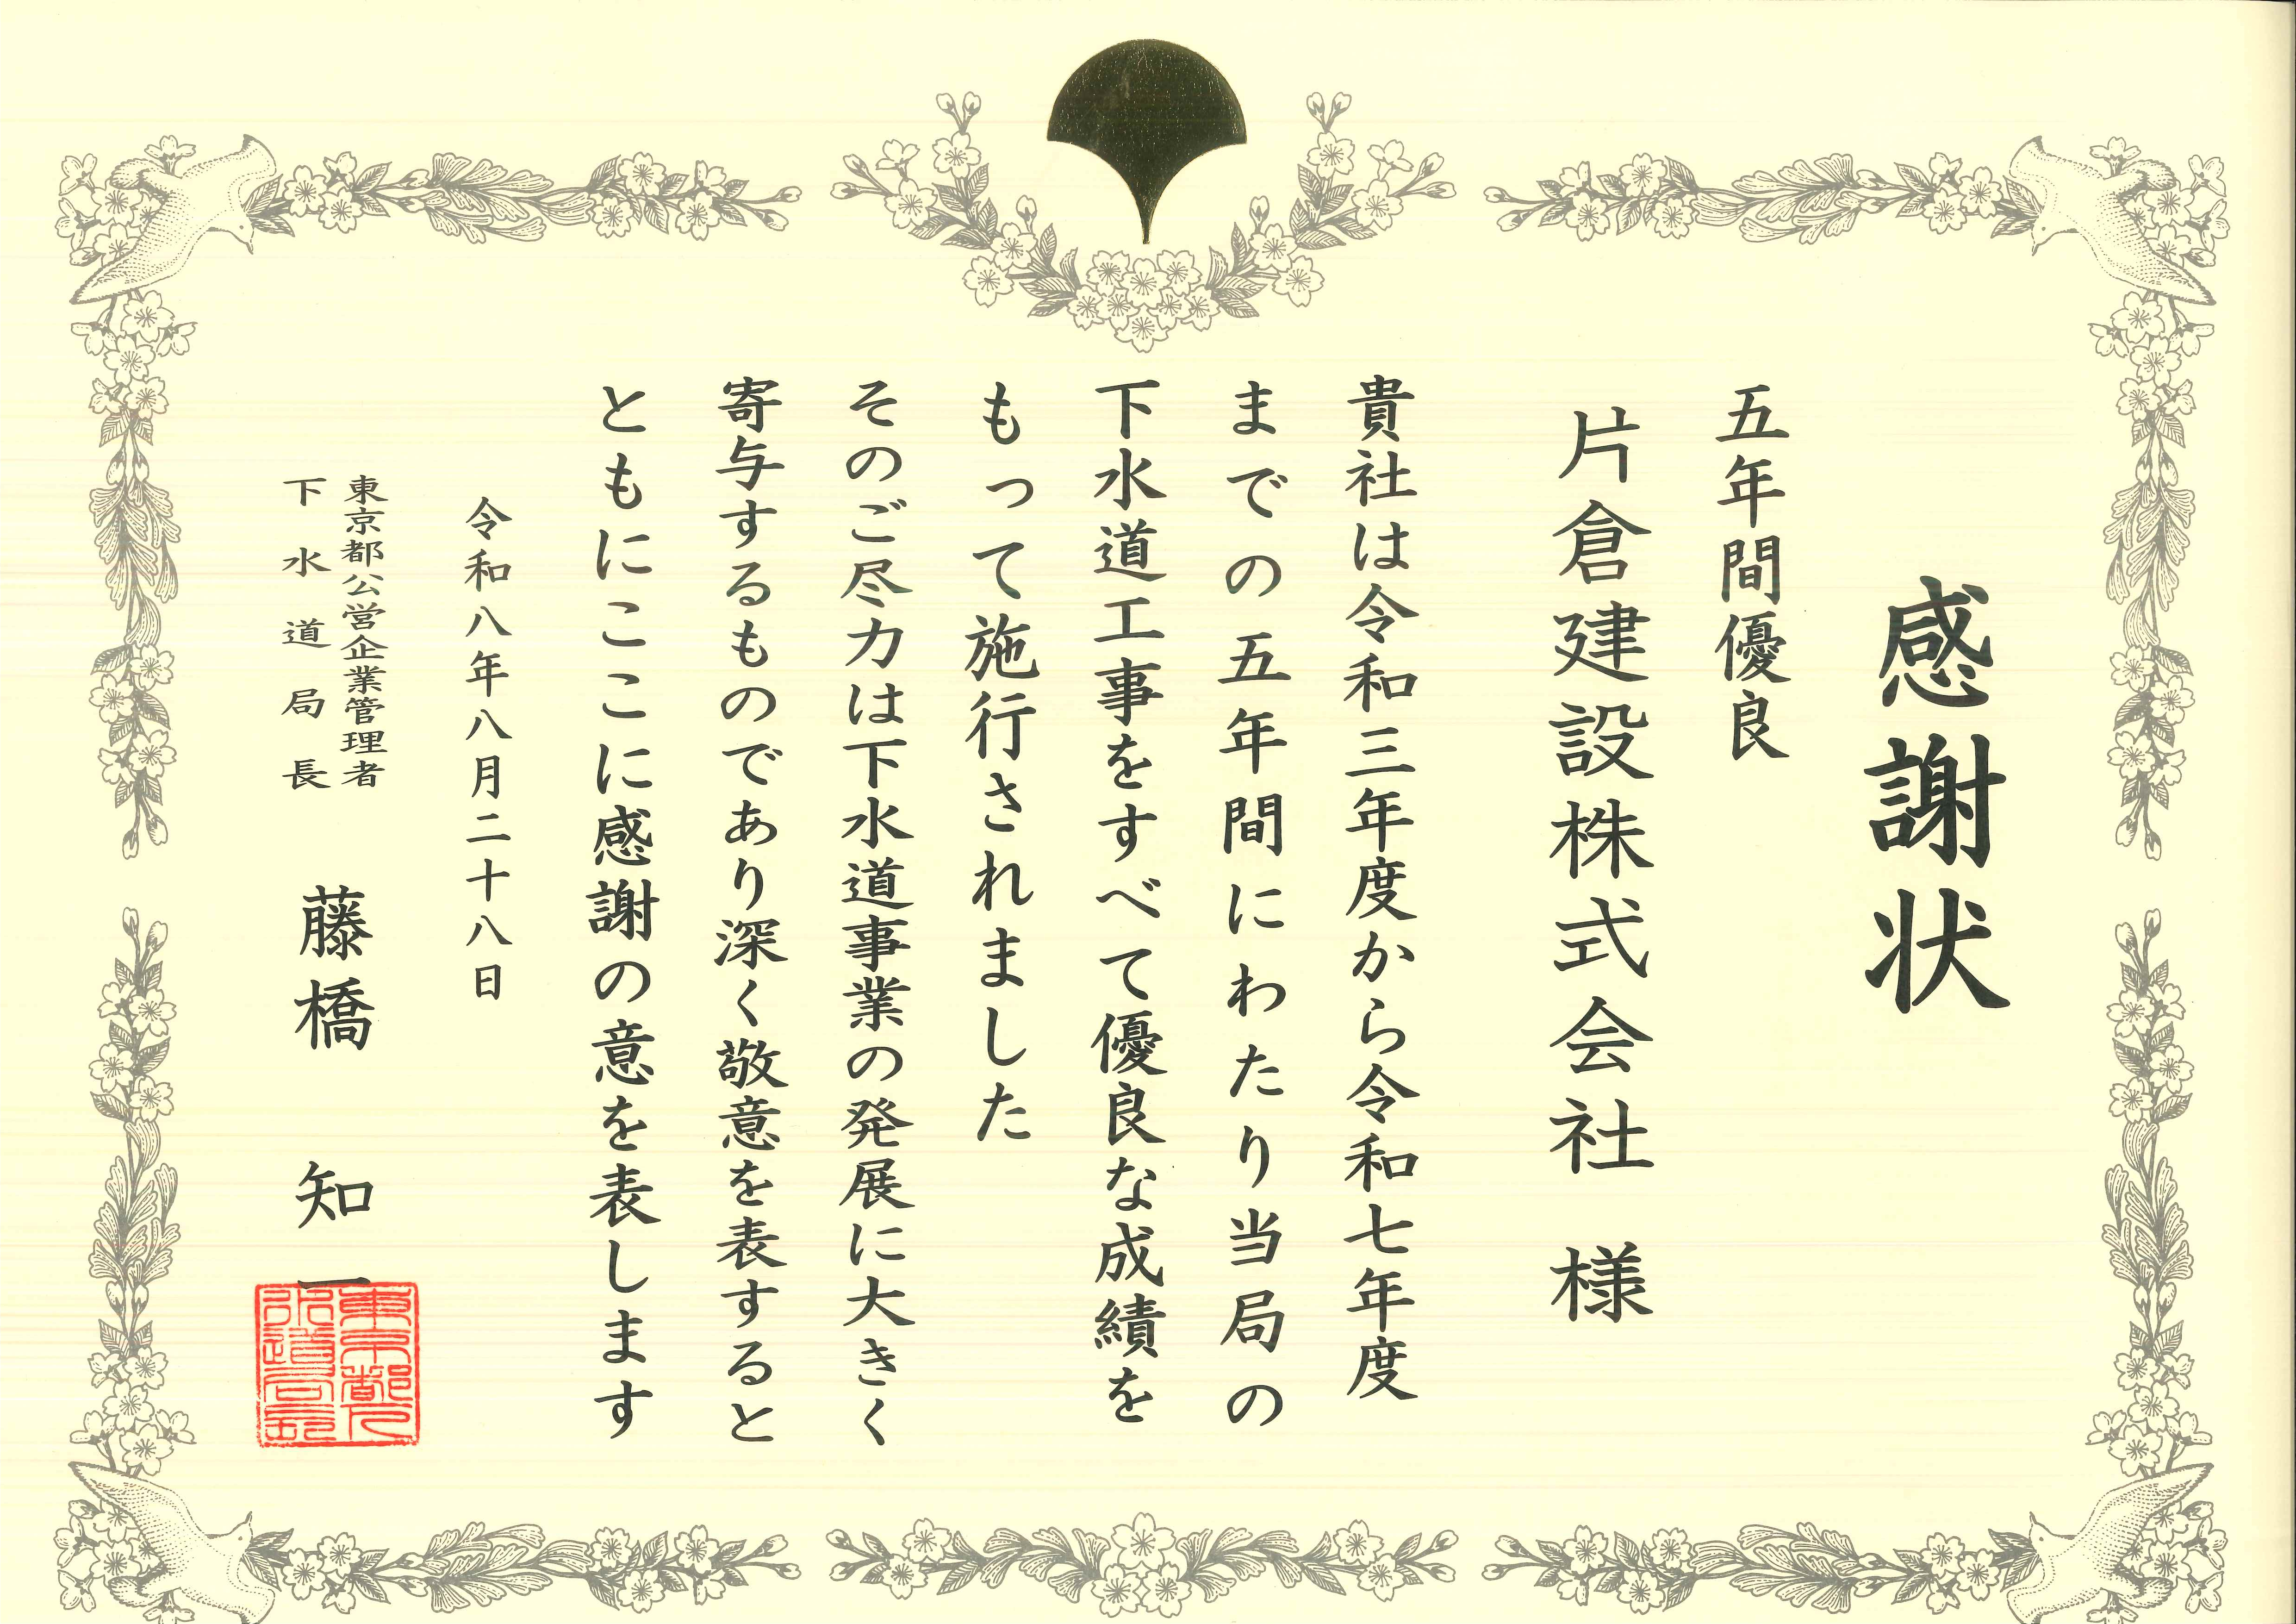 感謝状
五年間優良
片倉建設株式会社 様
貴社は令和三年度から令和七年度
までの五年間にわたり当局の
下水道工事をすべて優良な成績を
もって施行されました
そのご尽力は下水道事業の発展に大きく
寄与するものであり深く敬意を表すると
ともにここに感謝の意を表します
令和八年八月二十八日
東京都公営企業管理者
下水道局長
藤橋 知一